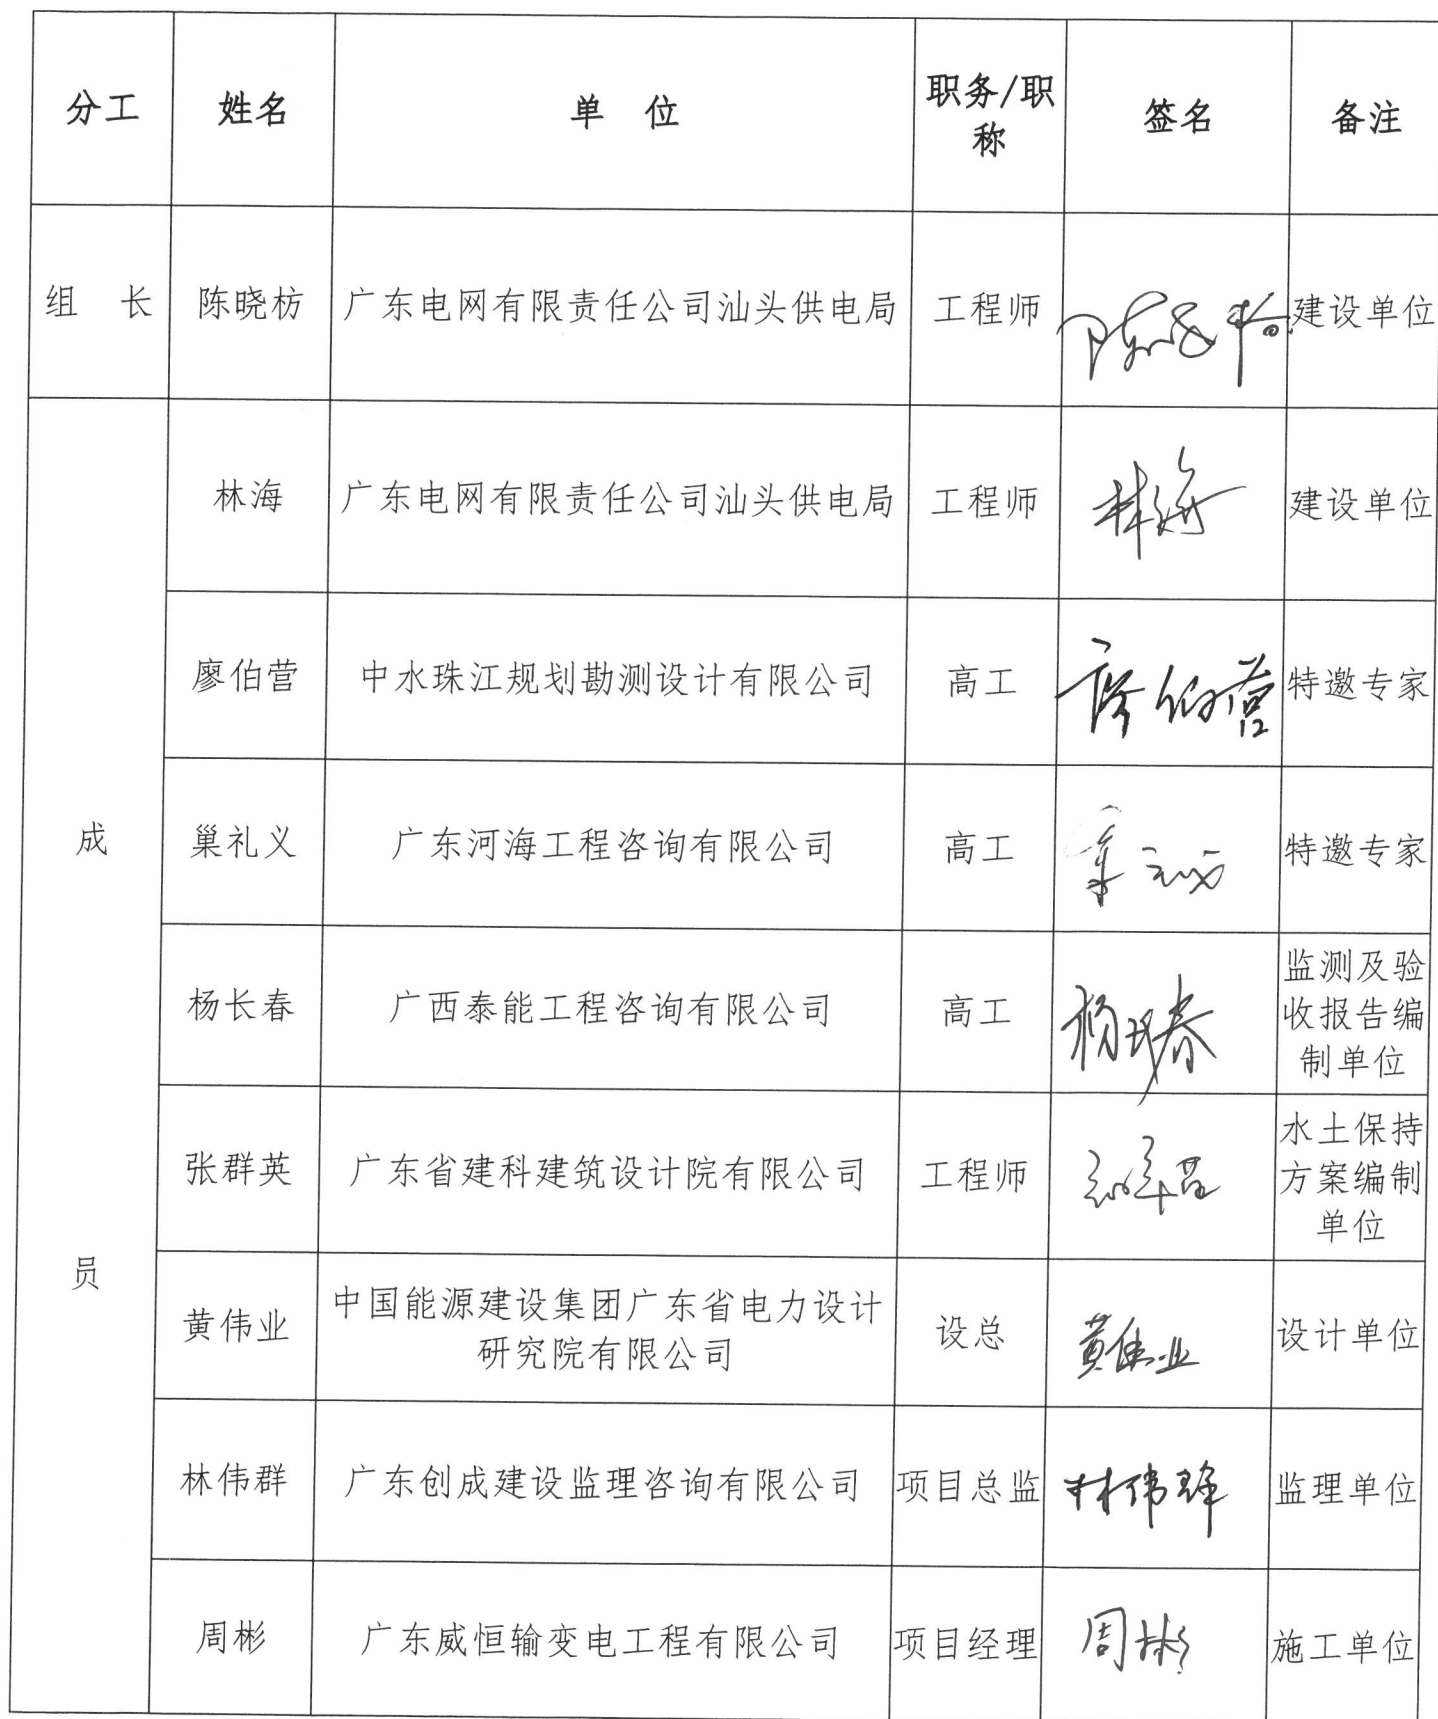 分工 姓名 单 位 职务/职称 签名 备注
组 长 陈晓枋 广东电网有限责任公司汕头供电局 工程师 陈晓枋 建设单位
成员
林海 广东电网有限责任公司汕头供电局 工程师 林海 建设单位
廖伯营 中水珠江规划勘测设计有限公司 高工 廖伯营 特邀专家
巢礼义 广东河海工程咨询有限公司 高工 巢礼义 特邀专家
杨长春 广西泰能工程咨询有限公司 高工 杨长春 监测及验收报告编制单位
张群英 广东省建科建筑设计院有限公司 工程师 张群英 水土保持方案编制单位
黄伟业 中国能源建设集团广东省电力设计研究院有限公司 设总 黄伟业 设计单位
林伟群 广东创成建设监理咨询有限公司 项目总监 林伟群 监理单位
周彬 广东威恒输变电工程有限公司 项目经理 周彬 施工单位